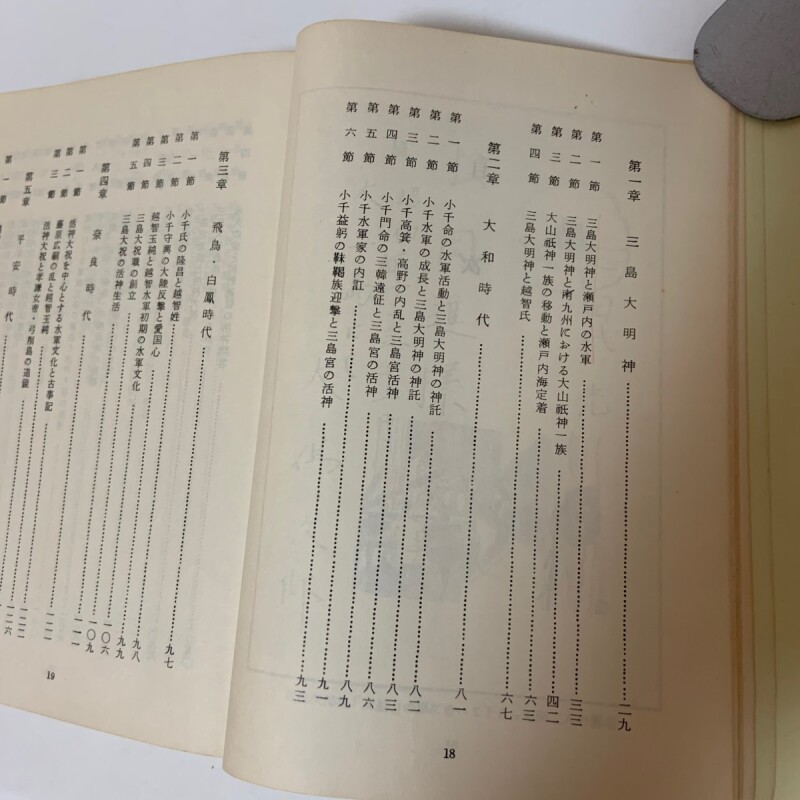 第一章　三島大明神……二九
第一節　三島大明神と瀬戸内の水軍……三三
第二節　三島大明神と南九州における大山祇神一族……四二
第三節　大山祇神一族の移動と瀬戸内海定着……六三
第四節　三島大明神と越智氏……六七
第二章　大和時代……八一
第一節　小千命の水軍活動と三島大明神の神託……八二
第二節　小千水軍の成長と三島大明神の神託……八三
第三節　小千高箕・高野の内乱と三島宮活神……八六
第四節　小千門命の三韓遠征と三島宮の活神……八九
第五節　小千水軍家の内訌……九一
第六節　小千益躬の靺鞨族迎撃と三島宮の活神……九三
18
第三章　飛鳥・白鳳時代……九七
第一節　小千氏の隆昌と越智姓……九八
第二節　小千守興の大陸反撃と愛国心……九九
第三節　越智玉純と越智水軍初期の水軍文化……一〇六
第四節　三島大祝職の創立……一〇九
第五節　三島大祝の活神生活……一一一
第四章　奈良時代……一二一
第一節　活神大祝を中心とする水軍文化と古事記……一二二
第二節　藤原広嗣の乱と越智玉純……一二六
第三節　活神大祝と孝謙女帝・弓削島の道鏡
第五章　平安時代
第一節
19